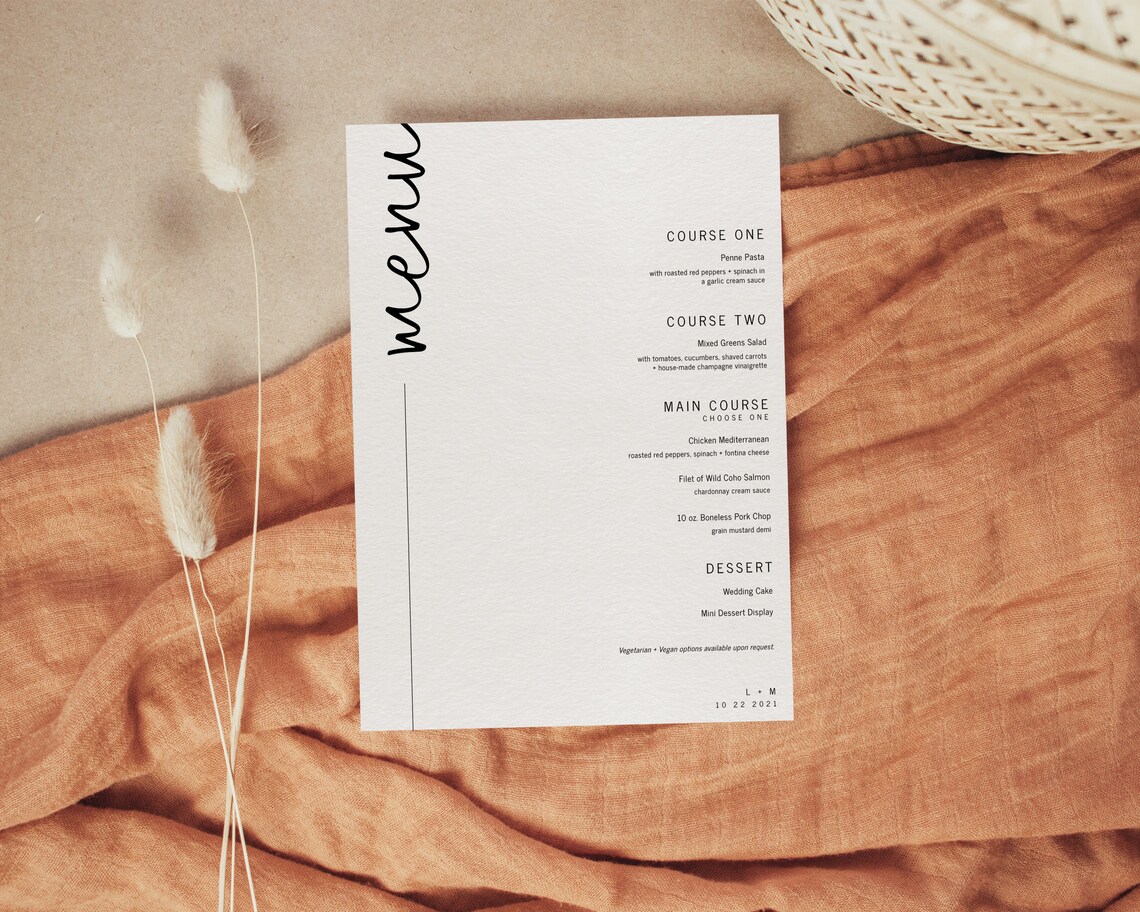 menu
COURSE ONE
Penne Pasta
with roasted red peppers + spinach in
a garlic cream sauce
COURSE TWO
Mixed Greens Salad
with tomatoes, cucumbers, shaved carrots
+ house-made champagne vinaigrette
MAIN COURSE
CHOOSE ONE
Chicken Mediterranean
roasted red peppers, spinach + fontina cheese
Filet of Wild Coho Salmon
chardonnay cream sauce
10 oz. Boneless Pork Chop
grain mustard demi
DESSERT
Wedding Cake
Mini Dessert Display
Vegetarian + Vegan options available upon request.
L + M
10 22 2021